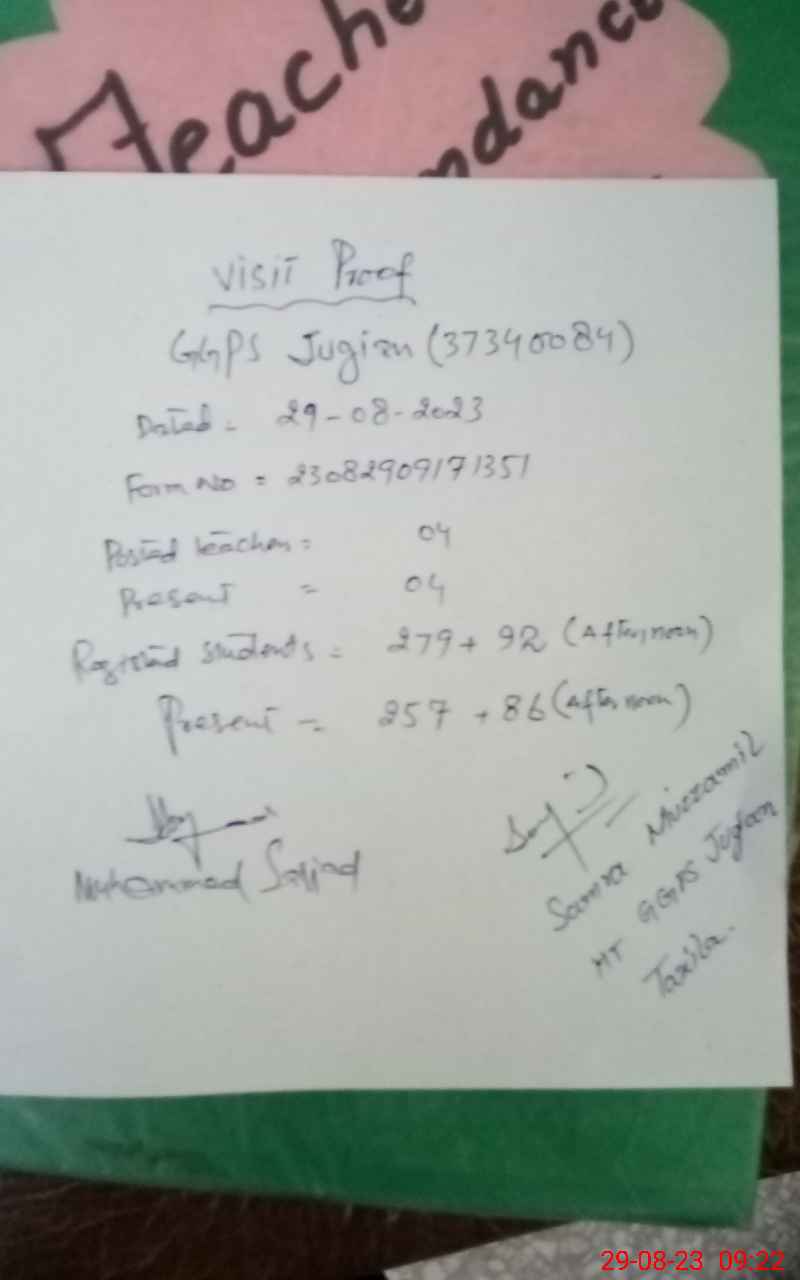 Teache
ndance
Visit Proof
GGPS Jugian (37340084)
Dated = 29-08-2023
Form No = 23082909171351
Posted teachers = 04
Present = 04
Registed students = 279 + 92 (Afternoon)
Present = 257 + 86 (Afternoon)
Muhammad Sajjad
Samra Muzzamil
HT GGPS Jugian
Taxila.
29-08-23 09:22